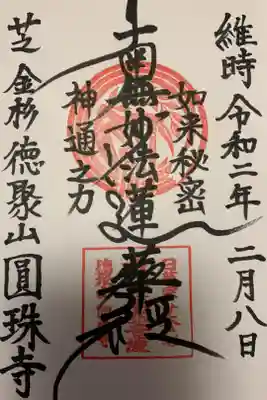 維時令和二年二月八日
如来秘密
南無妙法蓮華経
神通之力
芝金杉徳聚山圓珠寺